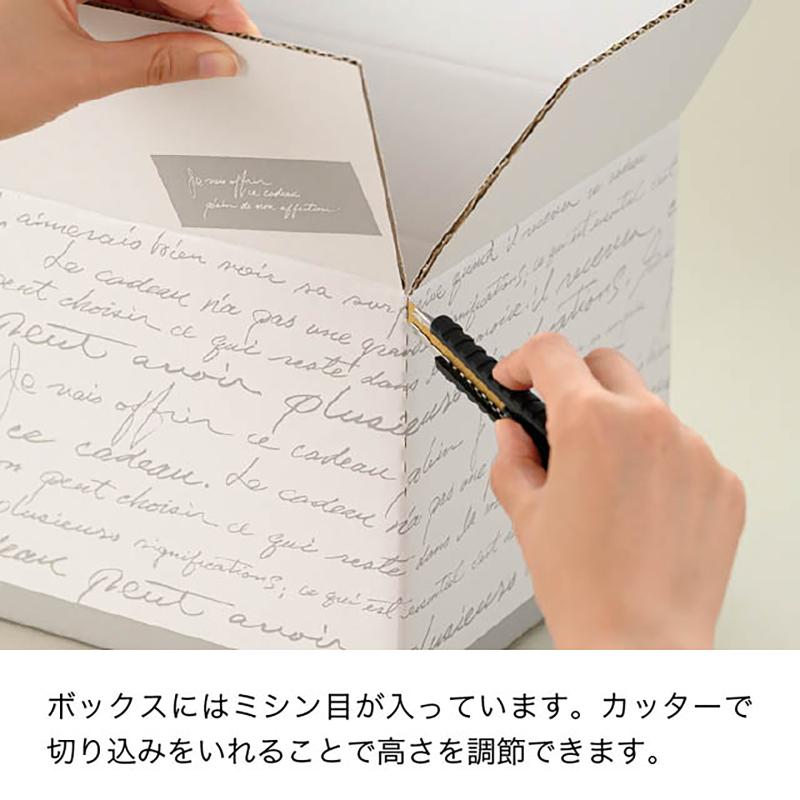 Je vais offrir
ce cadeau
plein de mon affection.
aimerais bien voir sa surprise quand il recevra ce cadeau
Le cadeau n'a pas une grande signification; ce qui est essentiel c'est
peut choisir ce qui reste dans la mémoire. il recevra
peut avoir plusieurs significations.
Je vais offrir ce cadeau plein
ce cadeau. Le cadeau n'a pas une
on peut choisir ce qui reste dans la
plusieurs significations; ce qui est essentiel c'est
cadeau peut avoir plusieurs
ボックスにはミシン目が入っています。カッターで
切り込みをいれることで高さを調節できます。